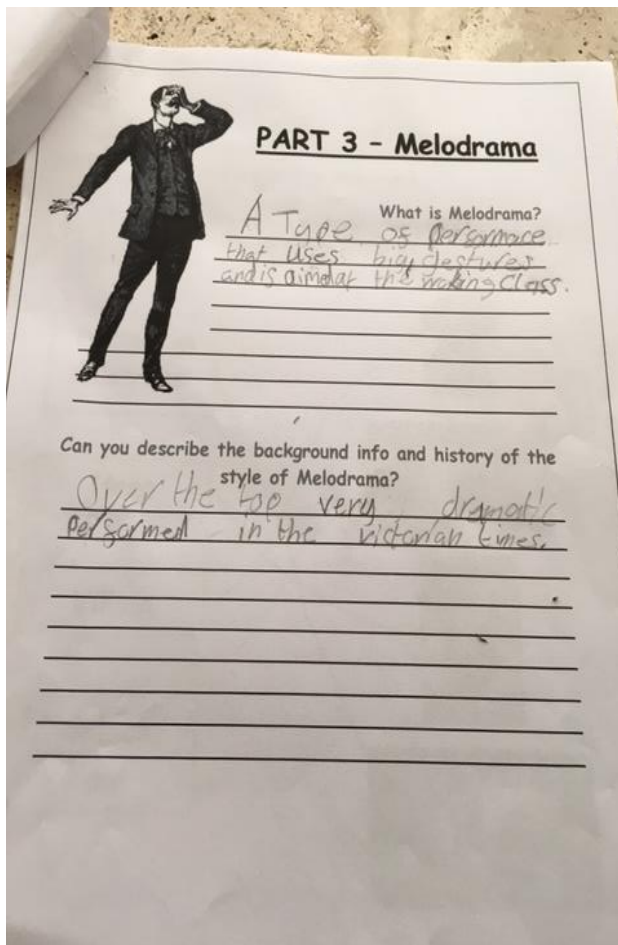 PART 3 - Melodrama
What is Melodrama?
A Type of performace
that uses big gestures
and is aimed at the working class.
Can you describe the background info and history of the
style of Melodrama?
Over the top very dramatic
performed in the victorian times.